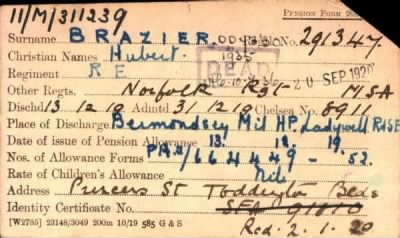 11/M/311239 PENSION FORM
Surname BRAZIER No. 291347.
Christian Names Hubert. 1955
Regiment R E DEAD 20 SEP 1920
Other Regts. Norfolk Rgt MSA
Dischd 13 12 19 Admtd 31 12 19 Chelsea No. 8911
Place of Discharge Bermondsey Mil HP. Ladywell Rd SE
Date of issue of Pension Allowance 13. 12. 19.
Nos. of Allowance Forms PA2/664449 - '52.
Rate of Children's Allowance Nil
Address Princes St Toddington Beds
Identity Certificate No. SFA
[W2785] 23148/3049 200m 10/19 585 G & S Rcd. 2. 1. 20